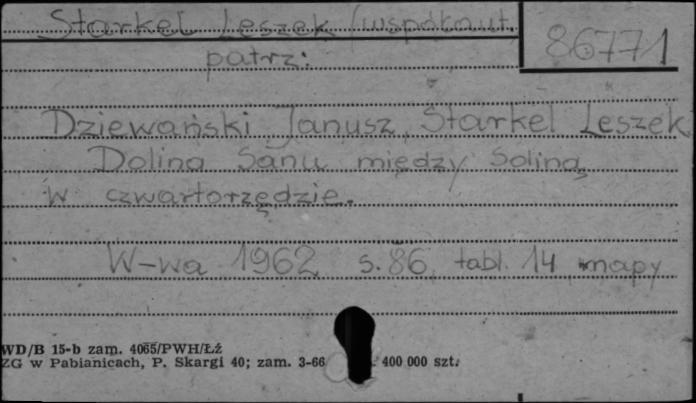 Starkel Leszek (współaut.
86771
patrz:
Dziewański Janusz, Starkel Leszek
Dolina Sanu między Soliną
w czwartorzędzie.
W-wa 1962 s. 86, tabl. 14 mapy
WD/B 15-b zam. 4065/PWH/Łź
ZG w Pabianicach, P. Skargi 40; zam. 3-66 400 000 szt.